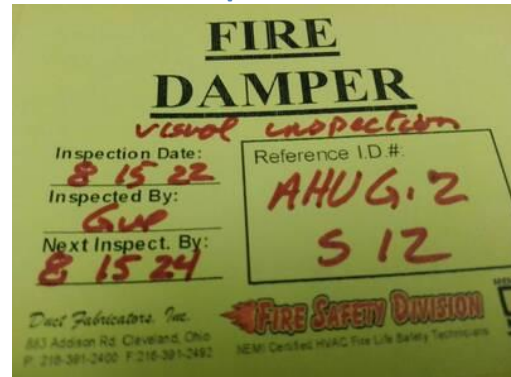 FIRE
DAMPER
visual inspection
Inspection Date:
8 15 22
Inspected By:
Next Inspect. By:
8 15 24
Reference I.D.#:
AHU G.2
S 12
Duct Fabricators, Inc.
883 Addison Rd. Cleveland, Ohio
P: 216-391-2400 F:216-391-2492
FIRE SAFETY DIVISION
NEMI Certified HVAC Fire Life Safety Technicians